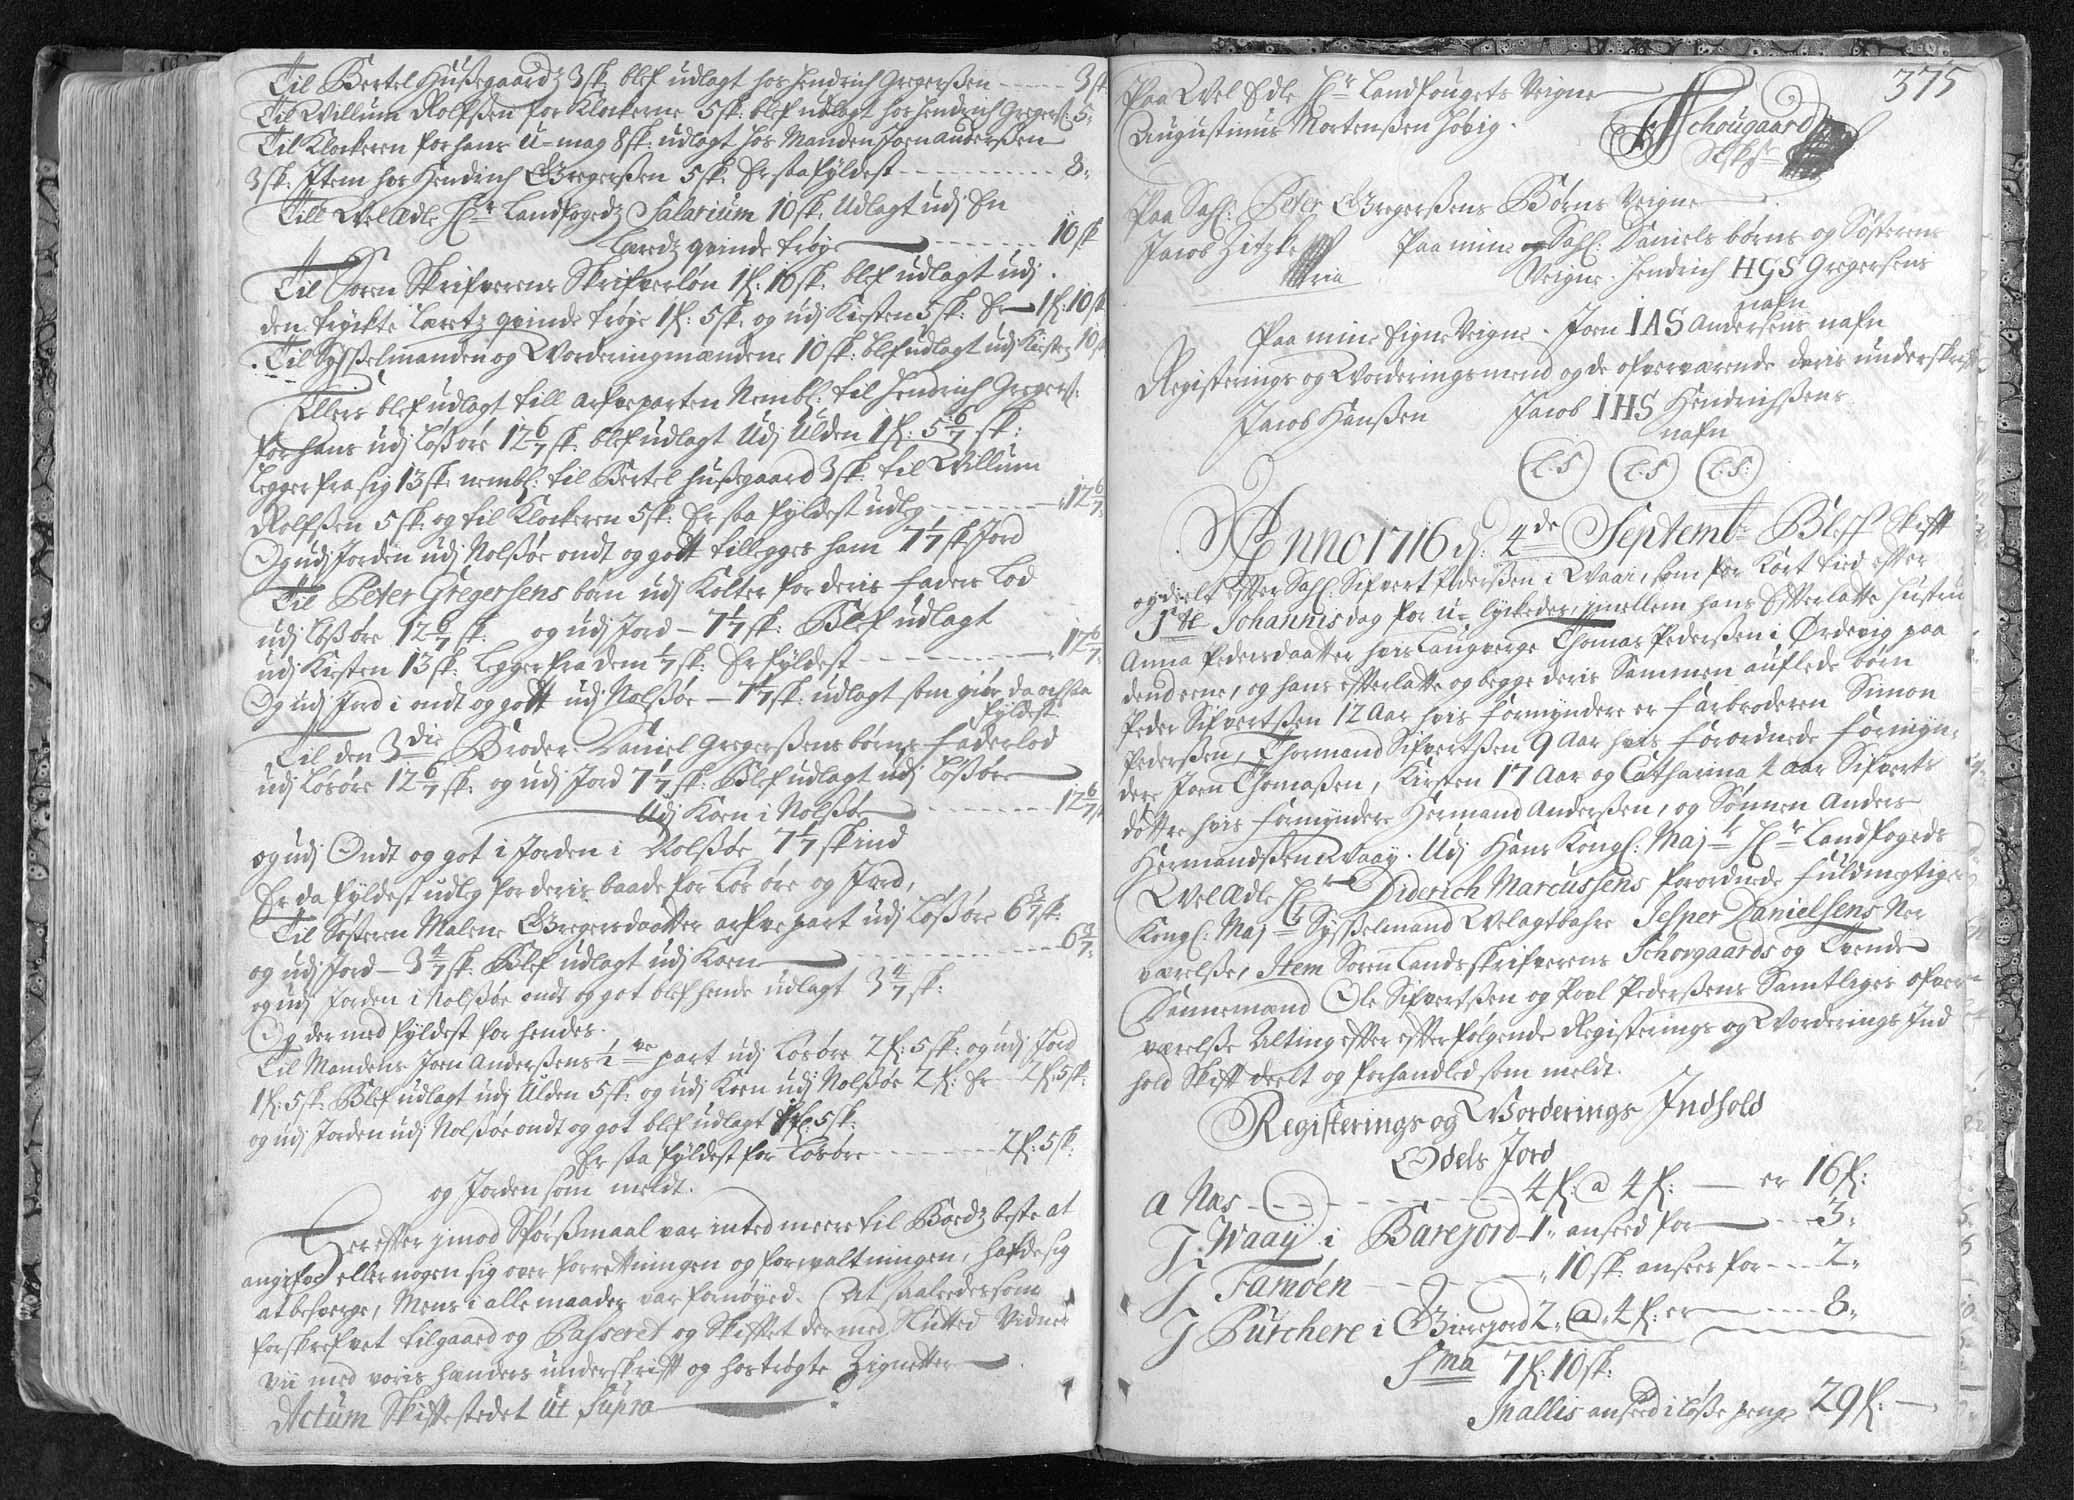 Til Bertel Hußegaardz 3 sk. blef udlagt hos Hendrich Gregerßen ----- 3 sk
Til Willum Rolfßen for Klockerne 5 sk: blef udlagt hos Hendrich Gregerß: 5„
Til Klockeren for hans U-mag 8 sk: udlagt hos Manden Joen Anderßen
3 sk. Item hos Hendrich Gregerßen 5 sk. Er saa fyldest ----------- 8„
Till WelAdle Hr Landfogedz Salarium 10 sk. Udlagt udj En
Laredz qvinde trøye ------ 10 sk
Til Soren Skrifverens Skrifverløn 1 f: 10 sk. blef udlagt udj
den trÿckte Laretz qvinde trøye 1 f: 5 sk. og udj Kisten 5 sk: Er 1 f: 10 sk
Til Sysßelmanden og Worderingmændene 10 sk: blef udlagt udj Kisten 10 sk
Ellers blef udlagt till arfveparten Nembl: til Hendrich Gregerß:
for hans udj Loßøre 12 6/7 sk. blef udlagt Udj Ulden 1 f: 5 6/7 sk:
Legger fra sig 13 sk. nembl: til Bertel Hußegaard 3 sk. til Willum
Rolfßen 5 sk: og til Klockeren 5 sk. Er saa fyldest udleg ------ „12 6/7„
Og udj Jorden udj Nolßøe ondt og gott tillegges ham 7 1/7 sk Jord
Til Peter Gregersens børn udj Kolter for deris Faders Lod
udj Loßøre 12 6/7 sk: og udj Jord – 7 1/7 sk: Blef udlagt
udj Kisten 13 sk. Legger fra dem 1/7 sk: Er fyldest ---------- „12 6/7„
Og udj Jord i ondt og gott udj Nolßøe – 7 1/7 sk: udlagt som giør, da ochsaa
fyldest
Til den 3die Broder Daniel Gregerßens børns Faderlod
udj Løsøre 12 6/7 sk. og udj Jord 7 1/7 sk. Blef udlagt udj Loßøre
Udj Koen i Nolßøe -------- 12 6/7 sk
og udj Ondt og got i Jorden i Nolßøe 7 1/7 skind
Er da fyldest udleg for deris baade for Løs øre og Jord,
Til Søsteren Malene Gregersdaatter arfvepart udj Loßøre 6 3/7 sk:
og udj Jord – 3 4/7 sk. Blef udlagt udj Koen ---------- 6 3/7„
og udj Jorden i Nolßøe ondt og got blef hende udlagt 3 4/7 sk:
Og der med fyldest for hendes.
Til Mandens Joen Anderßens 1/2ve part udj Løsøre 2 f: 5 sk: og udj Jord
1 f: 5 sk. Blef udlagt udj Ulden 5 sk: og udj Koen udj Nolßøe 2 f: Er -- 2 f. 5 sk:
og udj Jorden udj Nolßøe ondt og got blef udlagt 1 f: 5 sk:
Er saa fyldest for Løsøre --------- 2 f: 5 sk:
og Jorden som meldt.
Her effter imod Spørßmaal var inted meere til Boedz beste at
angifve eller nogen sig over forrettningen og forwaltningen, hafde sig
at besverge, Mens i alle maader var fornøyed. At saaledes som
forskrefvet tilgaaed og Passeret og Skifftet dermed Sluttet Vidner
vii med voris hænders underskrifft og hostrøgte Zignetter
Actum Skiftestedet Ut Supra
375
Paa Wel Edle Hr Landfougets Veigne
Augustinus Mortenßen Høvig.
Schougaard
Skfr
Paa Sahl: Peter Gregerßens Børns Veigne
Jacob Zitzke
Paa min og Sahl: Daniels børns og Søsterens
Veigne. Hendrich HGS Gregersens
nafn
Paa mine Egne Veigne. Joen IAS Andersens nafn
Registerings og Worderingsmend og de ofverværende deris underskrifft
Jacob Hanßen Jacob IHS Hendrichßens
nafn
L.S L.S L.S:
Anno 1716 d: 4de Septembr Bleff Skifft
og dielt effter Sahl. Sifvert Pederßen i Waai, som for kort tied effter
St Johannis dag for u-lyckedes, imellem hans Effterlatte Hustru
Anna Pedersdaatter hvis Laugverge Thomas Pederßen i Ørdevig paa
dend eene, og hans efterlatte og begge deris Sammen auflede børn
Peder Sifvertßen 12 Aar hvis Formyndere er Farbroderen Simon
Pederßen, Thormand Sifvertßen 9 Aar hvis Forordnede Formyn-
dere Joen Thomaßen, Kirsten 17 Aar og Catharina 2 Aar Sifverts
døttre hvis Formyndere Hermand Anderßen, og Sønnen Anders
Hermandßen i Waay. Udj Hans Kongl: Majts Hr Landfogeds
WelAdle Hr Diderich Marcussens forordnede Fuldmegtiges
Kongl: Majts Sysßelmand Welagtbahre Jesper Danielsens Ner
værelße, Item Soren Landsskrifverens Schovgaards og Tvende
Dannemænd Ole Sifvertßen og Povl Pederßens Samtliges ofver
værelße Alting effter efterfølgende Registerings og Worderings Ind
hold Skifft deelt og forhandled som meldt.
Registerings og Worderings Indhold
Odels Jord
a Næs ---------- 4 f: a 4 f: — er 16 f:
J. Waaÿ i Barejord 1„ anseed for --- 3„
J Famøen --------- „10 sk. ansees for --- 2„
J Pürchere i Gierejord 2„ a„ 4 f: er ----- 8„
Sma 7 f: 10 sk:
Jnallis anseed i løße peng 29 f: —